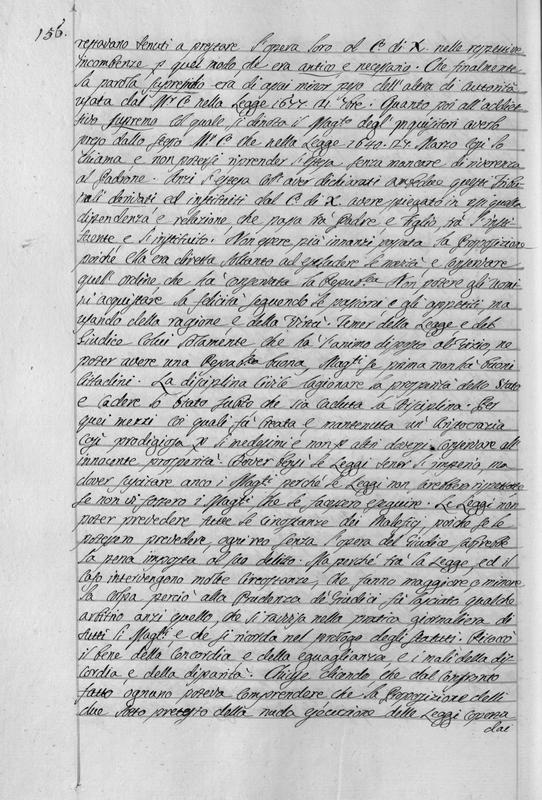 156.
restavano tenuti a prestare l'opera loro al C.º di X. nelle rispettive
incombenze p quel modo che era antico, e necessario. Che finalmente
la parola supremo era di assai minor peso dell'altra di autorità
usata dal Mr C.º nella Legge 1677 21 9bre. Quanto poi all'addiet-
tivo supremo col quale si denota il Magto degl'Inquisitori averlo
preso dallo stesso Mr. C.º che nella Legge 1640. 27. Marzo così lo
chiama e non potersi riprender l'istessa senza mancare di riverenza
al Padrone. Anzi l'istessa coll'aver dichiarati questi Tribu-
nali derivati ed instituiti dal C.º di X. avere spiegato in essi quella
dipendenza e relazione, che passa trà Padre, e Figlio, trà l'insti-
tuente e l'instituito. Non essere più innanzi la Proposizione
poiché ella era diretta soltanto ad escludere le novità, e conservare
quell'ordine che hà conservata la Republica. Non potere gli uomi-
ni acquistare la felicità seguendo le passioni, e gli appetiti, ma
usando della ragione e della Virtù. Temer della Legge e del
Giudice Colui solamente che hà l'animo disposto al Vizio, ne
poter avere una Republica buona Magti se prima non hà buoni
Cittadini. La disciplina Civile cagionare la prosperità dello Stato
e cadere lo Stato subito che sia caduta la disciplina. Per
quei mezzi coi quali fù creata, e mantenuta un'Aristocrazia
così prodigiosa p li medesimi e non p altri doversi conservare all'
innocente prosperità. Dover bensì le Leggi tener l'imperio, ma
dover suscitare anco i Magti perché le Leggi non sarebbero rispettate
se non vi fossero i Magti che le facessero eseguire. Le Leggi non
poter prevedere tutte le circostanze dei Maleficj, poiché se le
potessero prevedere, ogni reo senza l'opera del Giudice
la pena imposta al suo delitto. Ma perché trà la Legge, ed il
caso intervengono molte Circostanze, che fanno maggiore, o minore
la colpa perciò alla Prudenza de' Giudici fù lasciato qualche
arbitrio anzi quello, che si ravvisa nella pratica giornaliera di
tutti li Magti e che si ricorda nel prologo degli Statuti.
il bene della Concordia e della eguaglianza, e i mali della dis-
cordia e della disparità. Chiuse dicendo che dal Confronto
fatto ognuno poteva comprendere che la Proposizione delli
due sotto pretesto della nuda esecuzione delle Leggi